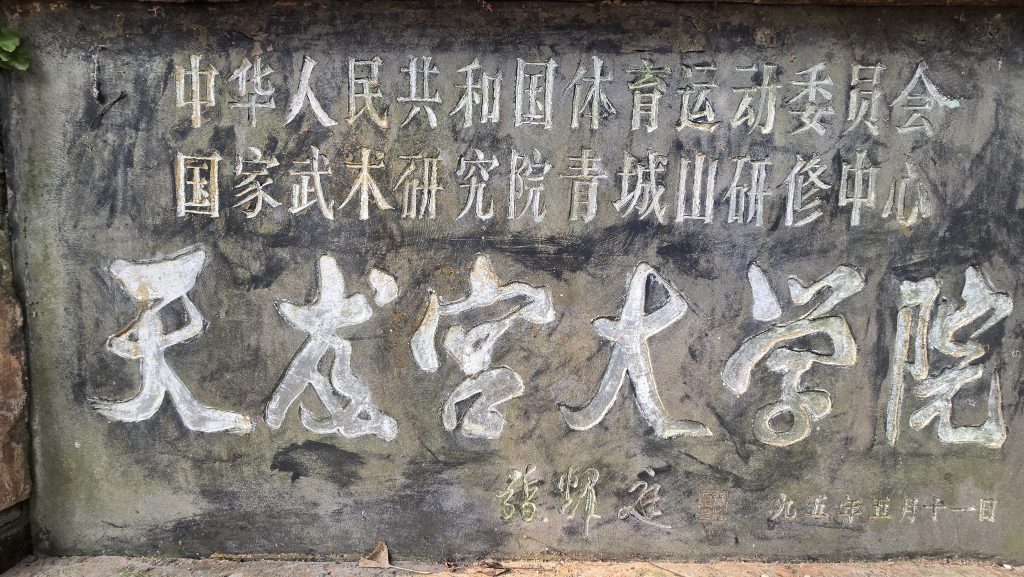 中华人民共和国体育运动委员会
国家武术研究院青城山研修中心
天龙宫大学院
张耀庭 九五年五月十一日